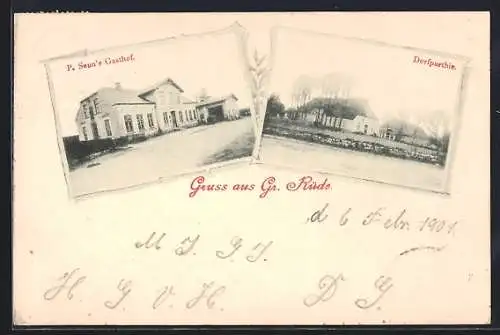 P. Senn's Gasthof.
Dorfparthie.
Gruss aus Gr. Rüde.
d 6 Febr. 1901
M J. G J.
H. G. v. H. D G